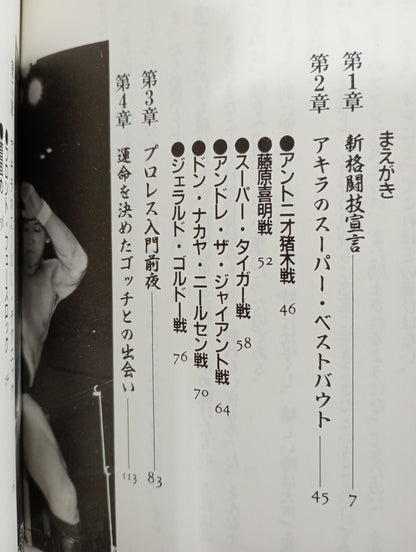 まえがき
第1章 新格闘技宣言 7
第2章 アキラのスーパー・ベストバウト 45
●アントニオ猪木戦 46
●藤原喜明戦 52
●スーパー・タイガー戦 58
●アンドレ・ザ・ジャイアント戦 64
●ドン・ナカヤ・ニールセン戦 70
●ジェラルド・ゴルドー戦 76
第3章 プロレス入門前夜 83
第4章 運命を決めたゴッチとの出会い 113